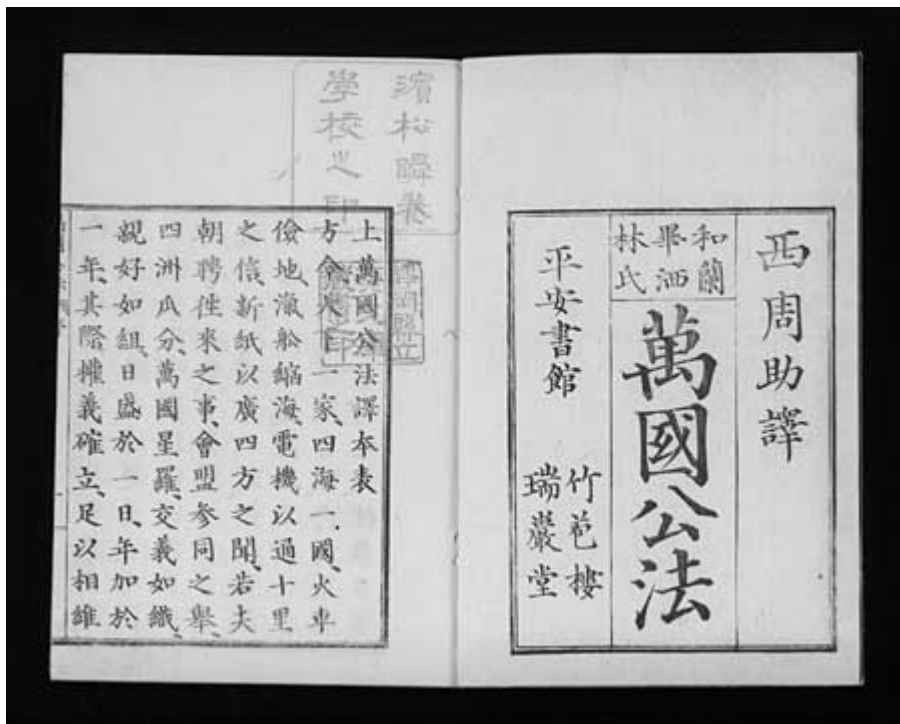 西周助譯
和蘭
畢洒
林氏
萬國公法
平安書館
竹苞樓
瑞巖堂
濱松
學校之印
上萬國公法譯本表
方今六合一家、四海一國、火車
儉地、瀛船縮海、電機以通十里
之信、新紙以廣四方之聞、若夫
朝聘往來之事、會盟參同之舉、
四洲瓜分、萬國星羅、交義如織、
親好如組、日盛於一日、年加於
一年、其際權義確立、足以相維